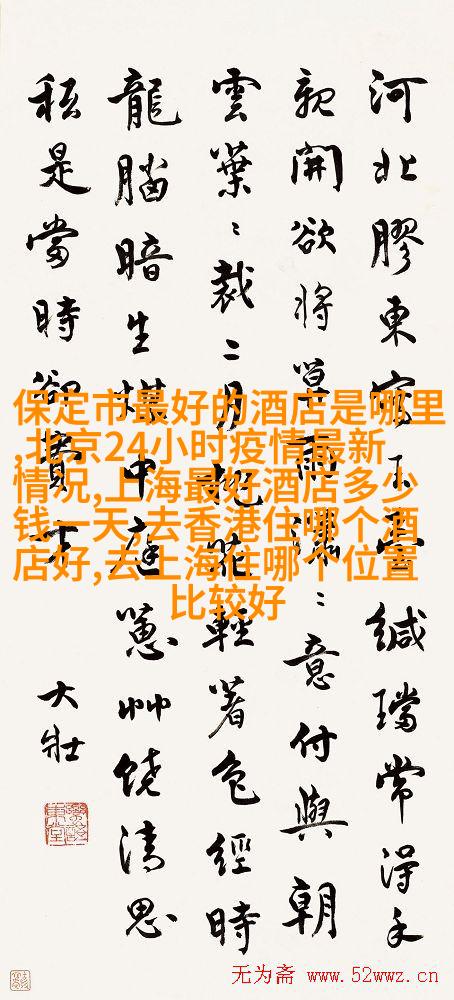 河北膠東緘璫常得手
親開欲將意付與朝
雲葉〻裁二月把花輕著色經時
龍腦暗生中庭蕙艸饒清思
秖是當時卻費才
大壯
保定市最好的酒店是哪里
,北京24小时疫情最新
情况,上海最好酒店多少
钱一天,去香港住哪个酒
店好,去上海住哪个位置
比较好
无为斋 www.52wwz.cn